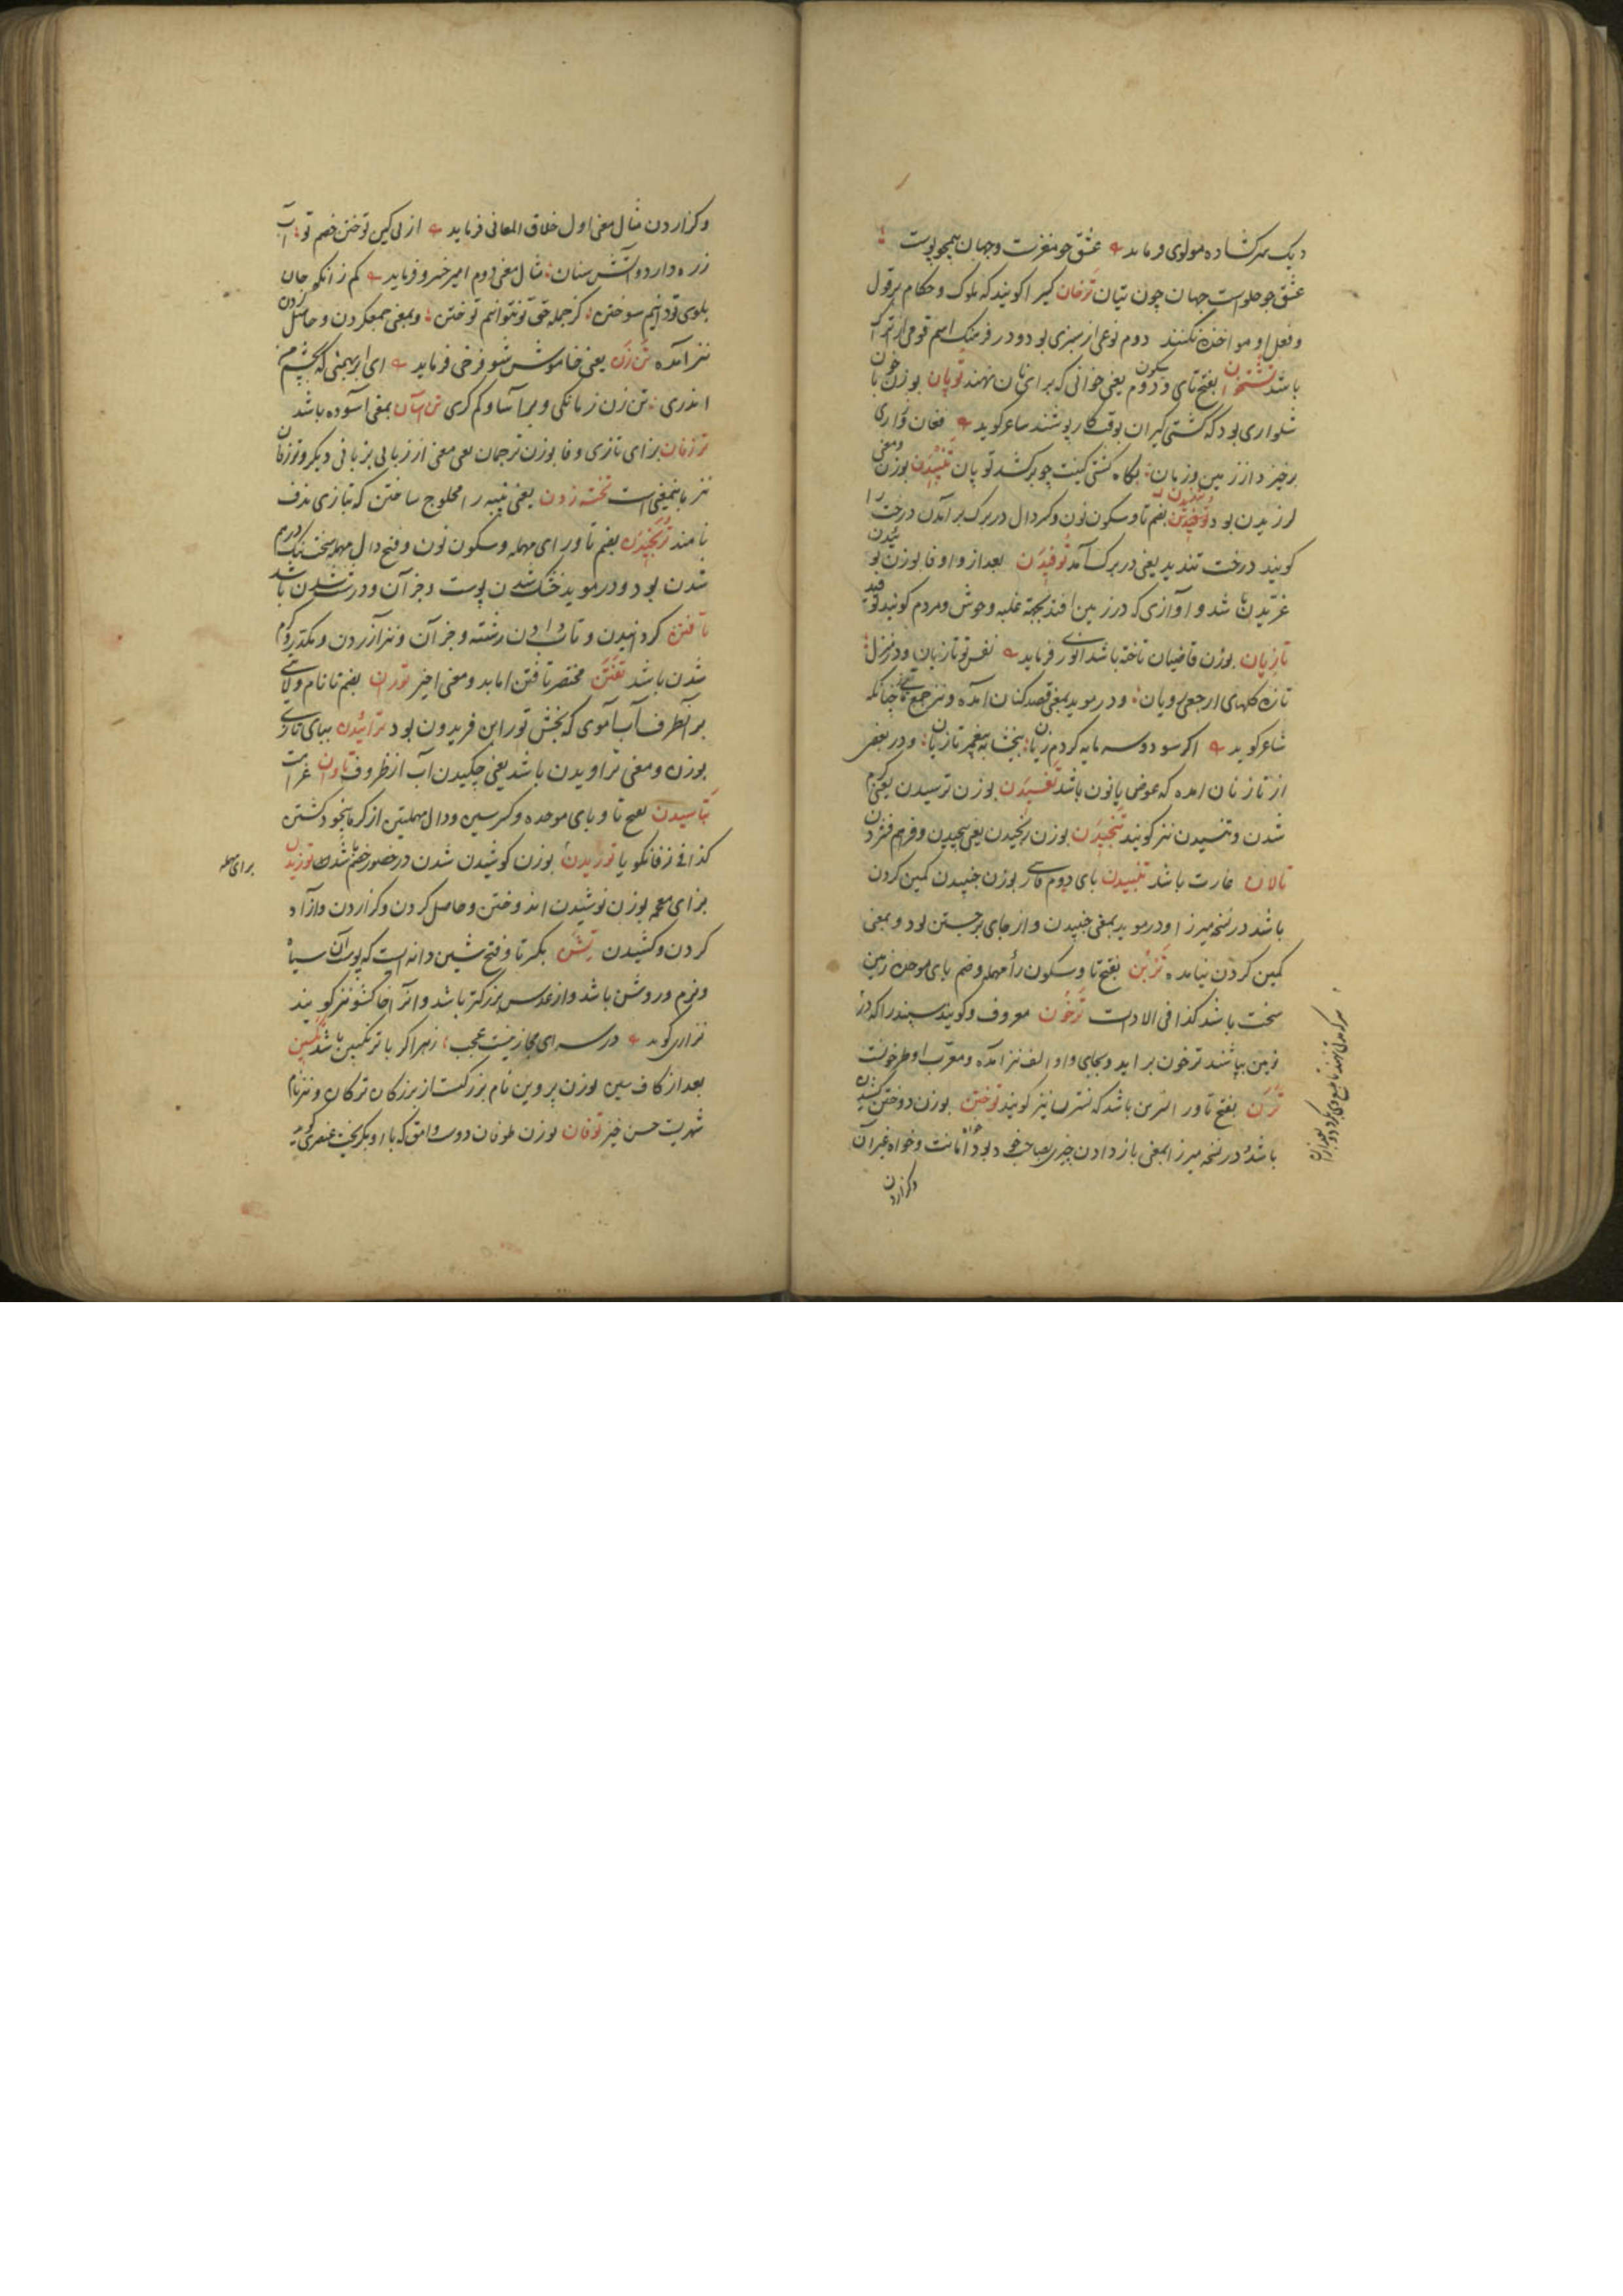 دیک سرکشاده مولوی فرماید عشق جو مغزست وجهان همچو پوست
عشق جو حلواست جهان چون تیان ترخان کسی را کویند که ملوک و حکام بر قول
و فعل او مواخذه نکنند دوم نوعی از سبزی بود و در فرهنک اسم قومی از ترک
باشد بفتح تای و دوم یعنی خوانی که برای نان نهند توبان بوزن خوبان
شلواری بود که کشتی کیران بوقت کار پوشند شاعر کوید
برخیزد از زمین وزبان بکاه کشتی چو برکشد توبان تنبیدن بوزن ومعنی
لرزیدن بود بضم تا وسکون نون وکسر دال در برک برآمدن درخت را
کویند درخت تندید یعنی در برک آمد توفیدن بعد از واو فا بوزن
غریدن باشد و آوازی که در زمین افتد بجهة غلبه وحوش ومردم کویند
تازیان بوزن قاضیان تاخته باشد انوری فرماید نفس تو تازیان ودر منزل
تازه کلهای ارجعی رویان ودر موید بمعنی قصدکنان آمده ونیز جمع تازی چنانکه
شاعر کوید اکر سود وسرمایه کردم زیان ببخشا به پیغمبر تازیان ودر بعضی
از تازنان آمده که عوض یا نون باشد تفسیدن بوزن ترسیدن یعنی کرم
شدن وتنسیدن نیز کویند تنجیدن بوزن رنجیدن یعنی پیچیدن وفراهم فشردن
تالان غارت باشد تنبسیدن بای دوم فارسی بوزن جنبیدن کمین کردن
باشد در نسخه میرزا ودر موید بمعنی جنبیدن و از جای برجستن بود وبمعنی
کمین کردن نیامده تربن بفتح تا وسکون راء مهمله وضم بای موحده زمین
سخت باشد کذا فی الادات ترخون معروف وکویند سپند را که در
زمین بپاشند ترخون براید وبجای واو الف نیز آمده ومعرب او طرخونست
ترن بفتح تا ور نسرین باشد که نسترن نیز کویند توختن بوزن دوختن کشیدن
باشد ودر نسخه میرزا بمعنی باز دادن چیزی بصاحب خود بود خواه امانت وخواه غیر آن
وکزاردن
وکزاردن مثال معنی اول خلاق المعانی فرماید از پی کین توختن خصم تو آب
زره دارد وآتش سنان مثال معنی دوم امیر خسرو فرماید کم ز آنکه جان
بلوی تو دانم سوختن کز جمله حق تو نتوانم توختن وبمعنی جمع کردن وحاصل کردن
نیز آمده تن زن یعنی خاموش شو فرخی فرماید ای ابر بهمنی که بچشم من
اندری تن زن زمانکی وبیاسا وکم کری تن آسان بمعنی آسوده باشد
ترزفان بزای تازی وفا بوزن ترجمان یعنی معنی از زبانی بزبانی دیکر وترزفان
نیز باینمعنی است تخته زدن یعنی پنبه را محلوج ساختن که بتازی ندف
نامند ترنجیدن بضم تا ورای مهمله وسکون نون وفتح دال مهمله سخت
شدن بود ودر موید خشک شدن پوست وجز آن ودرشت شدن باشد
تافتن کردانیدن وتاب دادن رشته وجز آن ونیز آزردن ومکدر وکرم
شدن باشد تفتن مختصر تافتن اما بد ومعنی اخیر توران بضم تا نام ولایتی
بر آنطرف آب آموی که بخش تور ابن فریدون بود ترابیدن ببای تازی
بوزن ومعنی تراویدن باشد یعنی چکیدن آب از ظروف تاوان غرامت
تباسیدن بفتح تا وبای موحده وکسر سین ودال مهملتین از کرما بیخود کشتن
کذا فی زفانکویا توریدن بوزن کوشیدن شدن در حضور خصم باشد توزیدن
برای مهمله
بزای معجمه بوزن نوشیدن اندوختن وحاصل کردن وکزاردن وازاد
کردن وکشیدن تشن بکسر تا وفتح شین دانه ایست که پوست آن سیاه
ونرم وروشن باشد واز عدس بزرکتر باشد وآنرا خاکشو نیز کویند
نزاری کوید در سرای مجاز نیست عجب زهر اکر با ترنکبین باشد تکین
بعد از کاف سین بوزن پروین نام بزرکیست از بزرکان ترکان ونیز نام
شهریست حسن خیز توفان بوزن طوفان دوست وامق که با او بکریخت عنصری کوید